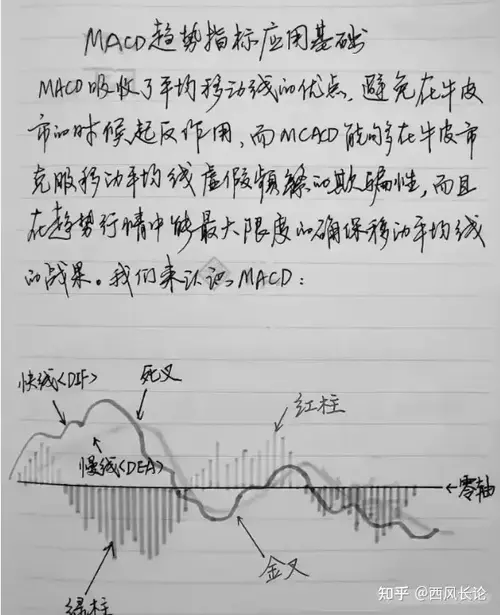 MACD趋势指标应用基础
MACD吸收了平均移动线的优点,避免在牛皮
市的时候起反作用,而MCACD能够在牛皮市
克服移动平均线虚假频繁的欺骗性,而且
在趋势行情中能最大限度的确保移动平均线
的战果。我们来认识MACD:
快线<DIF>
死叉
红柱
慢线<DEA>
←零轴
金叉
绿柱
知乎 @西风长论